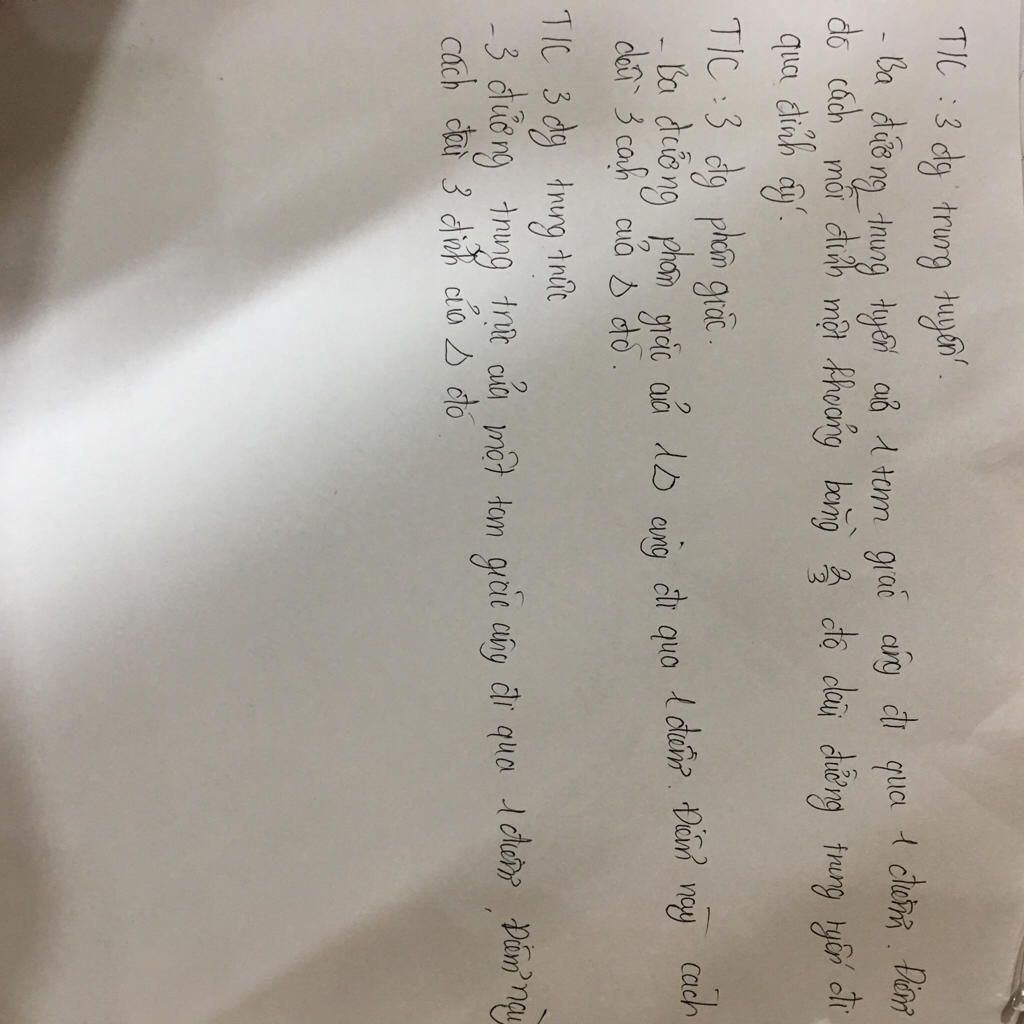 T/C : 3 đg trung tuyến.
- Ba đường trung tuyến của 1 tam giác cùng đi qua 1 điểm. Điểm
đó cách mỗi đỉnh một khoảng bằng 2/3 độ dài đường trung tuyến đi
qua đỉnh ấy.
T/C : 3 đg phân giác.
- Ba đường phân giác của 1 Δ cùng đi qua 1 điểm. Điểm này cách
đều 3 cạnh của Δ đó.
T/C 3 đg trung trực
- 3 đường trung trực của một tam giác cùng đi qua 1 điểm, Điểm này
cách đều 3 đỉnh của Δ đó